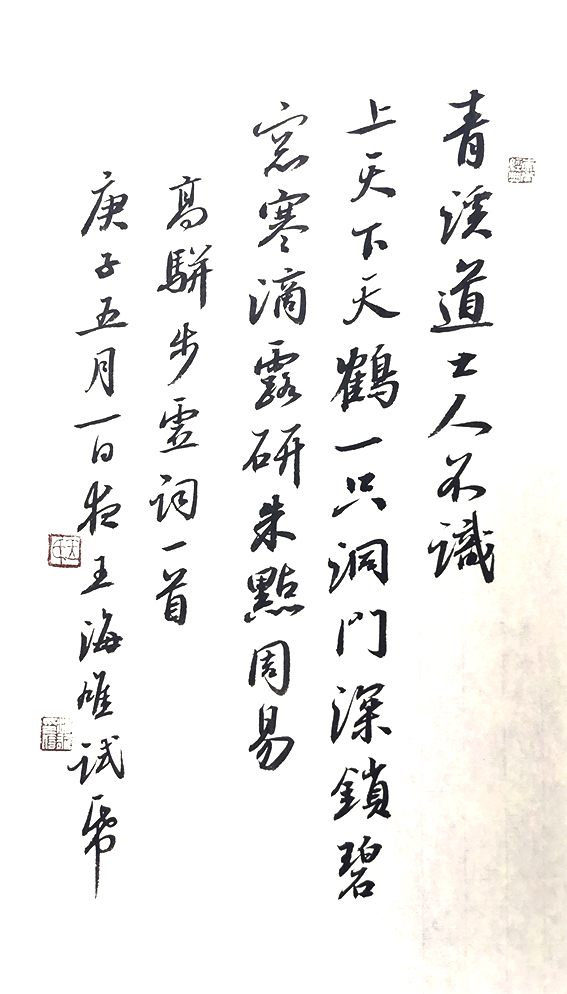 青溪道士人不識
上天下天鶴一只洞門深鎖碧
窓寒滴露研朱點周易
高駢步虛詞一首
庚子五月一日夜王海雄試帋